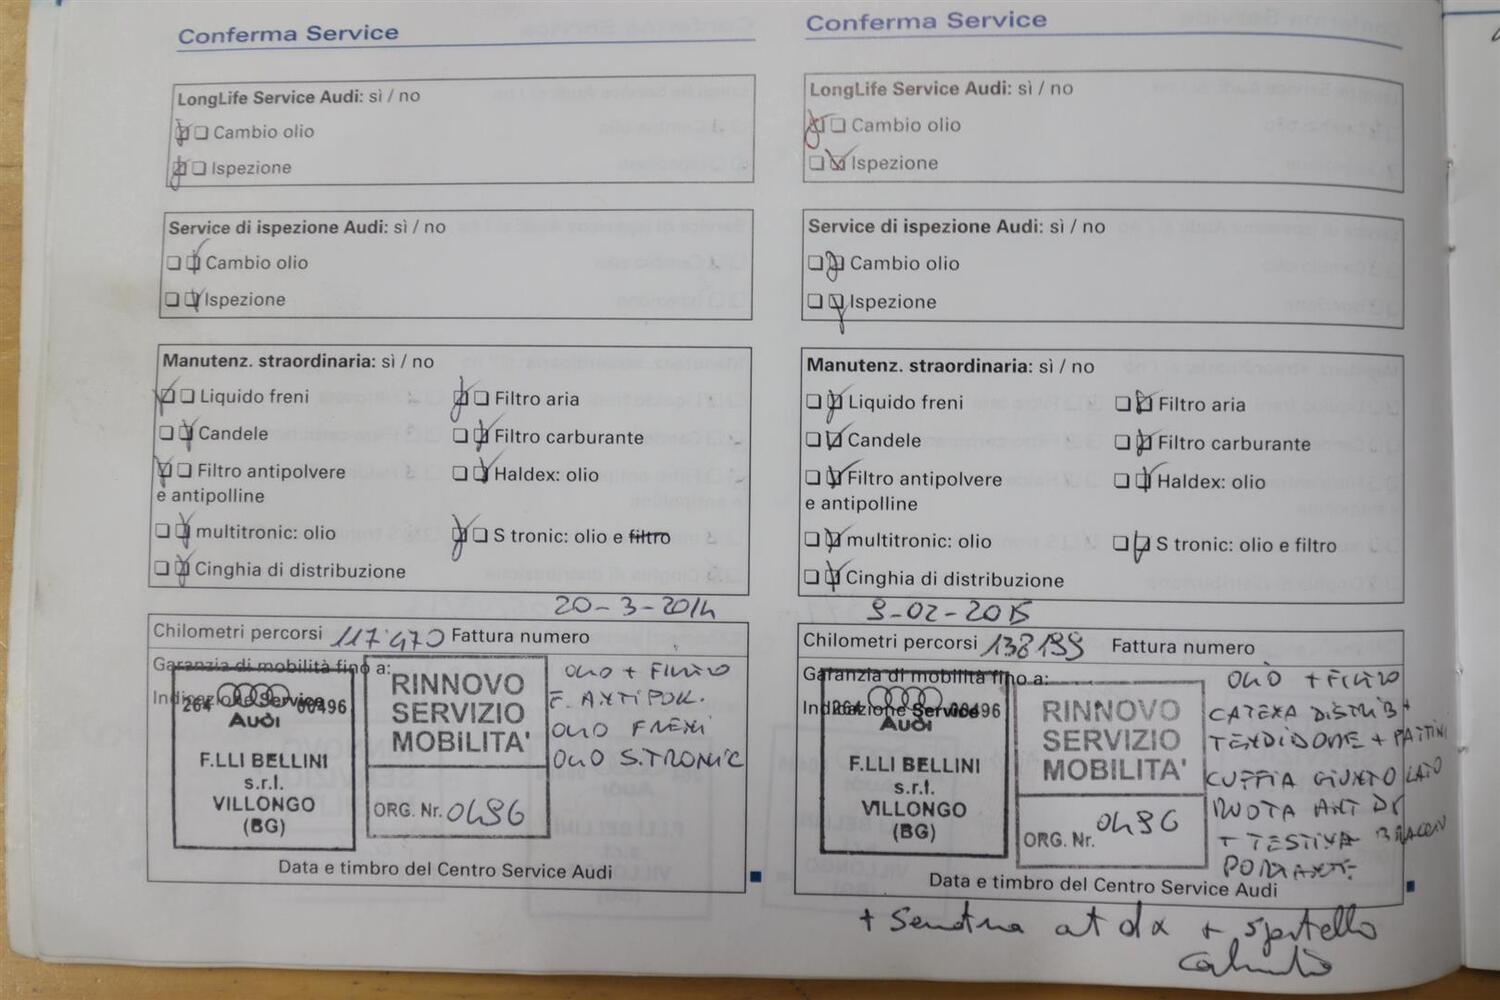 Conferma Service
LongLife Service Audi: sì / no
Cambio olio
Ispezione
Service di ispezione Audi: sì / no
Cambio olio
Ispezione
Manutenz. straordinaria: sì / no
Liquido freni
Filtro aria
Candele
Filtro carburante
Filtro antipolvere
e antipolline
Haldex: olio
multitronic: olio
S tronic: olio e filtro
Cinghia di distribuzione
20-3-2014
Chilometri percorsi 117'470 Fattura numero
Garanzia di mobilità fino a:
Indicazione Service
264 00496
Audi
F.LLI BELLINI
s.r.l.
VILLONGO
(BG)
RINNOVO
SERVIZIO
MOBILITA'
ORG. Nr. 0496
OLIO + FILTRO
F. ANTIPOL.
OLIO FRENI
OLIO S.TRONIC
Data e timbro del Centro Service Audi
Conferma Service
LongLife Service Audi: sì / no
Cambio olio
Ispezione
Service di ispezione Audi: sì / no
Cambio olio
Ispezione
Manutenz. straordinaria: sì / no
Liquido freni
Filtro aria
Candele
Filtro carburante
Filtro antipolvere
e antipolline
Haldex: olio
multitronic: olio
S tronic: olio e filtro
Cinghia di distribuzione
9-02-2015
Chilometri percorsi 138199 Fattura numero
Garanzia di mobilità fino a:
Indicazione Service
264 00496
Audi
F.LLI BELLINI
s.r.l.
VILLONGO
(BG)
RINNOVO
SERVIZIO
MOBILITA'
ORG. Nr. 0496
OLIO + FILTRO
CATENA DISTRIB +
TENDITORE + PATTINI
CUFFIA GIUNTO LATO
RUOTA ANT DX
+ TESTINA BRACCIO
PORTANTE
Data e timbro del Centro Service Audi
+ at dx + sportello